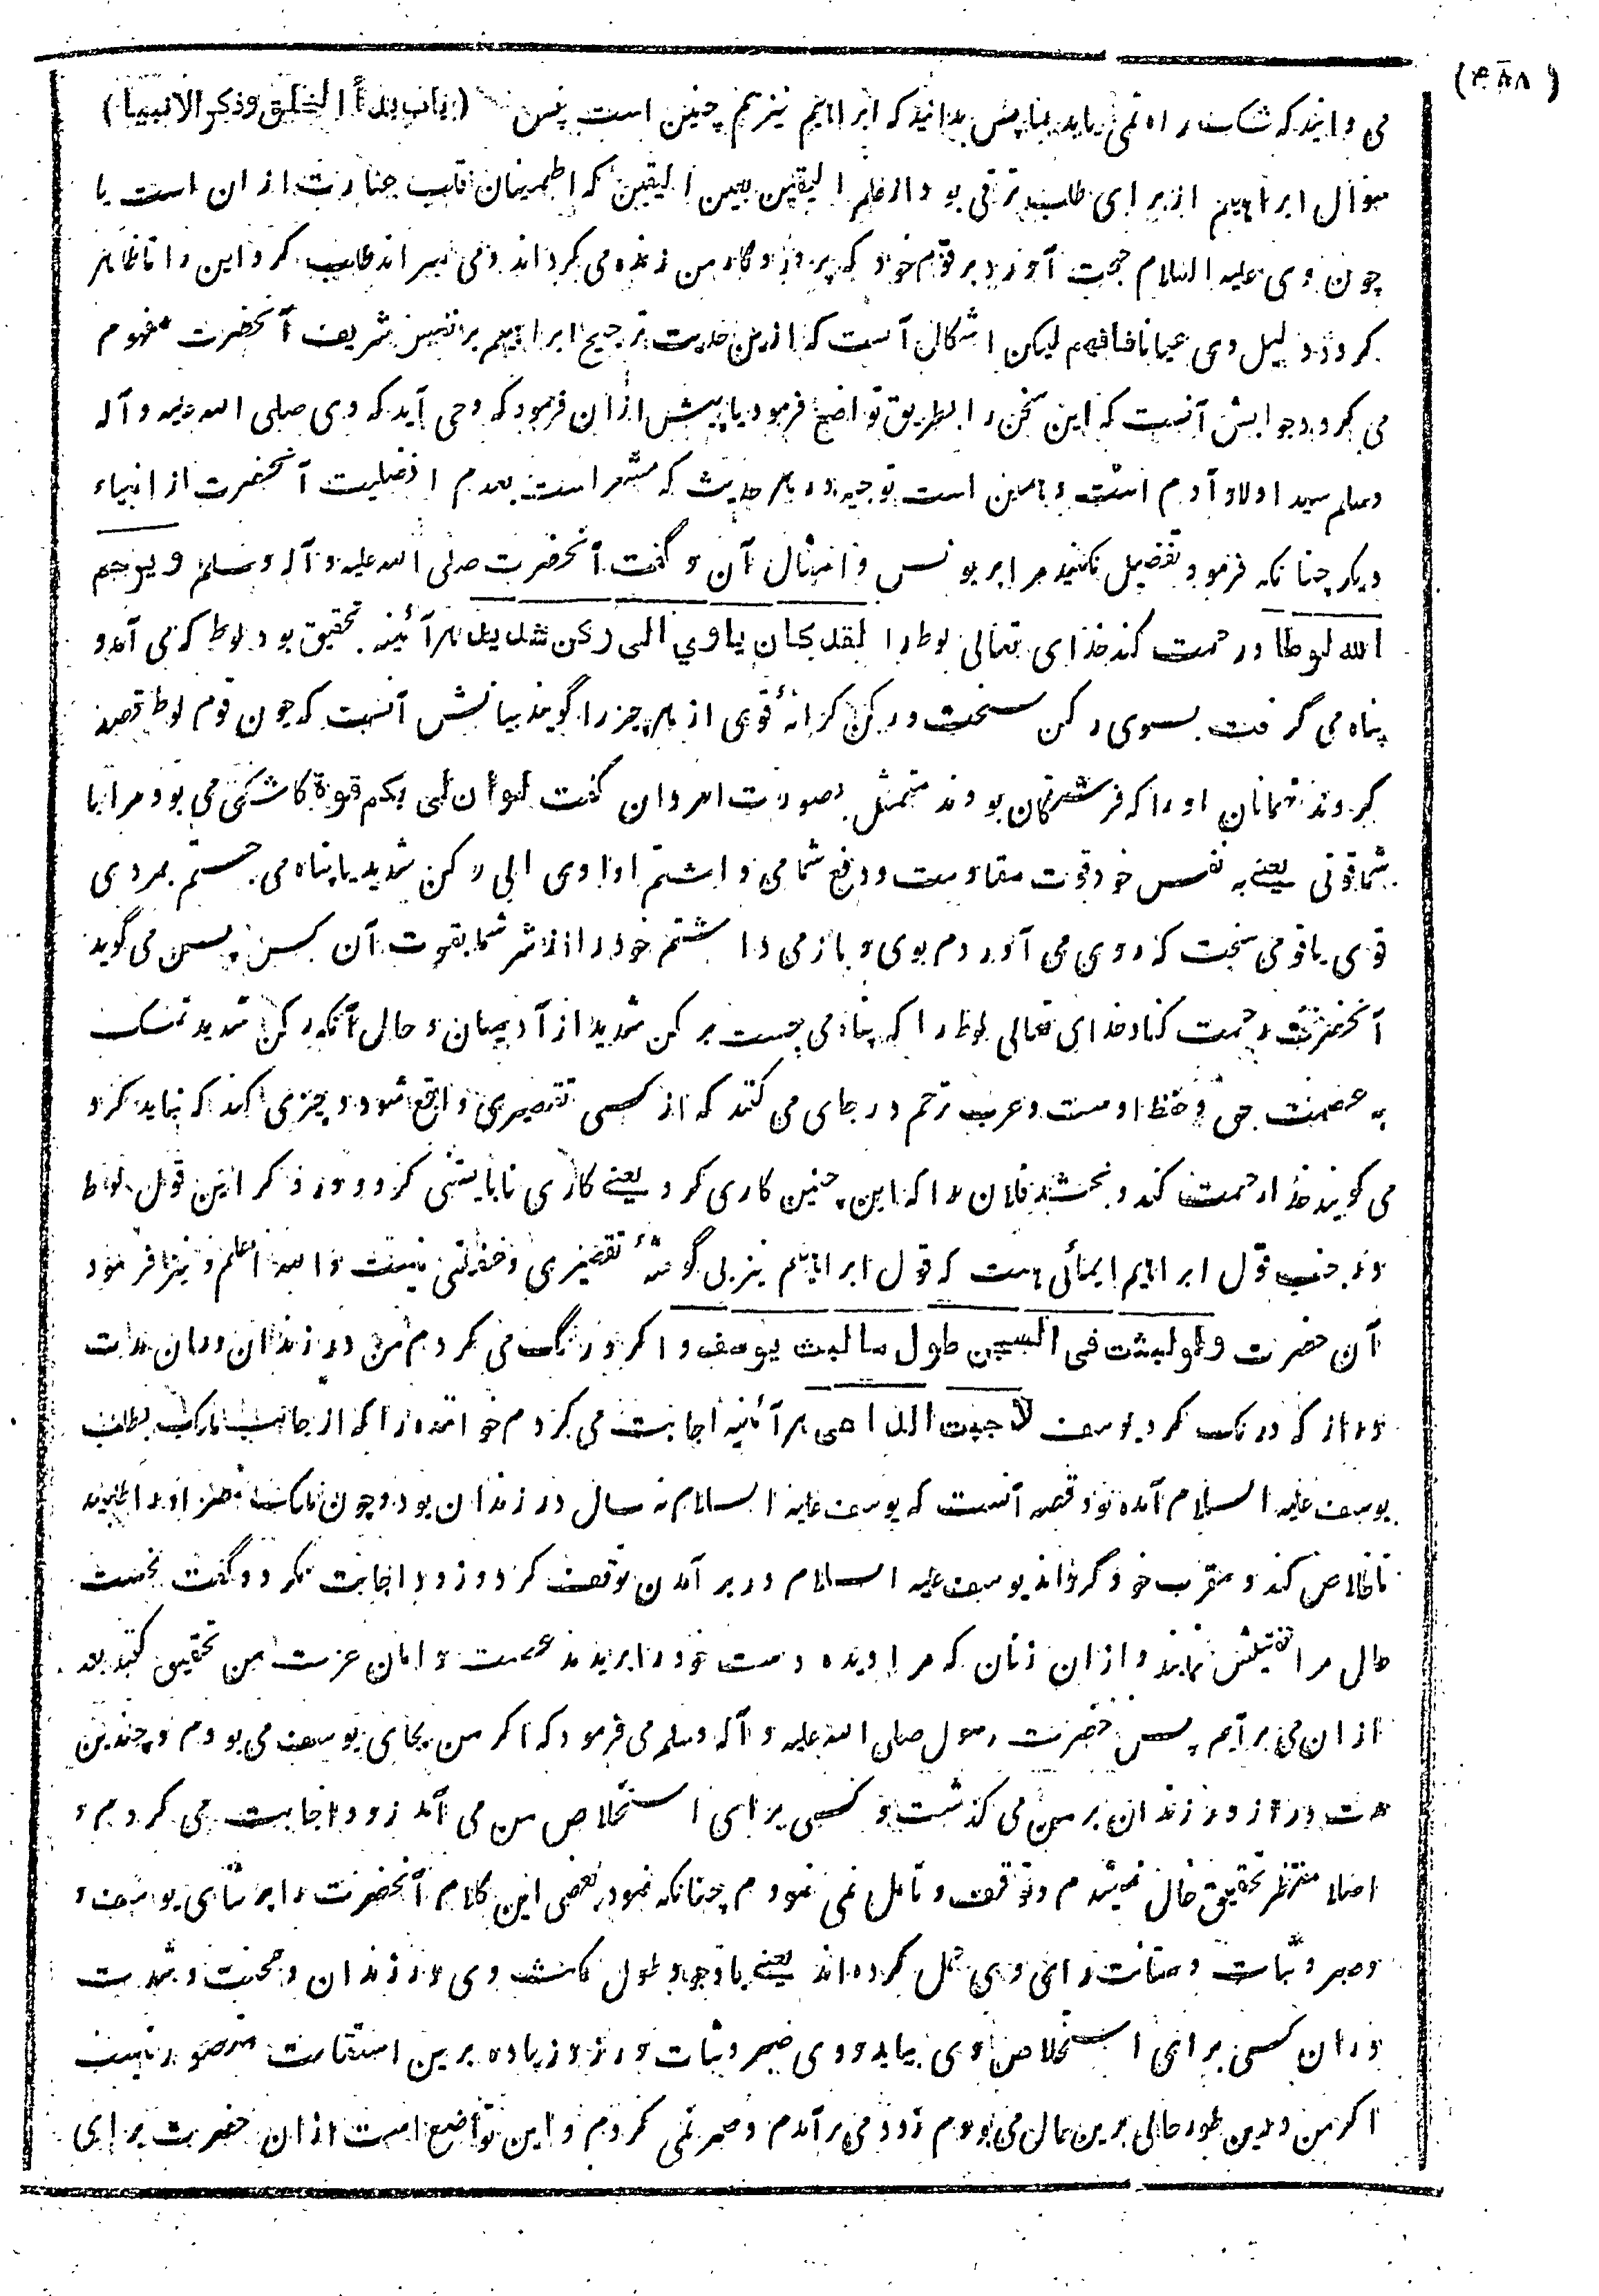 (۴۸۸)
(باب بدأ الخلق وذكر الانبيا)
می دانید که شک راه نمی یابد بما پس بدانید که ابراهیم نیز هم چنین است پس
سوال ابراهیم از برای طلب ترقی بود از علم الیقین بعین الیقین که اطمینان قلب عبارت از ان است یا
چون وی علیه السلام حجت آورد بر قوم خود که پروردگار من زنده می گرداند و می میراند طلب کرد این را تا ظاهر
کردد دلیل وی عیانا فافهم لیکن اشکال آنست که ازین حدیث ترجیح ابراهیم بر نفس شریف آنحضرت مفهوم
می گردد جوابش آنست که این سخن را بطریق تواضع فرمود یا پیش ازان فرمود که وحی آید که وی صلی الله علیه و آله
وسلم سید اولاد آدم است و همین است توجیه در هر حدیث که مشعر است بعدم افضلیت آنحضرت از انبیاء
دیگر چنانکه فرمود تفضیل نکنید مرا بر یونس و امثال آن و گفت آنحضرت صلی الله علیه و آله وسلم و یرحم
الله لوطا و رحمت کند خدای تعالی لوط را لقد کان یاوي الی رکن شدید هر آئینه تحقیق بود لوط که می آمد و
پناه می گرفت بسوی رکن سخت و رکن کرانۀ قوی از هر چیز را گویند بیانش آنست که چون قوم لوط قصد
کردند مهمانان او را که فرشتگان بودند متمثل بصورت امردان گفت لوان لی بکم قوة کاشکی می بود مرا با
شما قوتی یعنے به نفس خود قوت مقاومت و دفع شما می داشتم او اوی الی رکن شدید یا پناه می جستم بمردی
قوی یا قومی سخت که روی می آوردم بوی و باز می داشتم خود را از شر شما بقوت آن کس پس می گوید
آنحضرت رحمت کناد خدای تعالی لوط را که پناه می جست بر کن شدید از آدمیان و حال آنکه رکن شدید تمسک
به عصمت حق و حفظ اوست و عرب ترحم در جای می کنند که از کسی تقصیری واقع شود و چیزی کند که نباید کرد
می گویند خدا رحمت کند و بخشد فلان را که این چنین کاری کرد یعنے کاری نابایستنی کرد و در ذکر این قول لوط
در جنب قول ابراهیم ایمائی هست که قول ابراهیم نیز بی گوشۂ تقصیری و غفلتی نیست و الله اعلم و نیز فرمود
آن حضرت و لو لبثت فی السجن طول ما لبث یوسف و اگر درنگ می کردم من در زندان در ان مدت
دراز که درنگ کرد یوسف لاجبت الداعی هر آئینه اجابت می کردم خواننده را که از جانب ملک بطلب
یوسف علیه السلام آمده بود قصه آنست که یوسف علیه السلام نه سال در زندان بود و چون ملک مصر او را طلبید
تا خلاص کند و مقرب خود گرداند یوسف علیه السلام در بر آمدن توقف کرد و زود اجابت نکرد و گفت نخست
حال مرا تفتیش نمایند و از ان زنان که مرا دیده دست خود را بریدند عصمت و امان عزت من تحقیق کنند بعد
از ان می بر آیم پس حضرت رسول صلی الله علیه و آله وسلم می فرمود که اگر من بجای یوسف می بودم و چندین
مدت دراز در زندان بر من می گذشت و کسی برای استخلاص من می آمد زود اجابت می کردم و
اصلا منتظر تحقیق حال نمیشدم و توقف و تامل نمی نمودم چنانکه نمود بعضی این کلام آنحضرت را بر ثنای یوسف و
وصبر و ثبات و متانت رای وی حمل کرده اند یعنے با وجود طول مکث وی در زندان و محنت و شدت
در ان کسی برای استخلاص وی بیاید و وی صبر و ثبات ورزد زیاده برین استقامت متصور نیست
اگر من درین طور حالی برین حال می بودم زود می بر آمدم و صبر نمی کردم و این تواضع است از ان حضرت برای